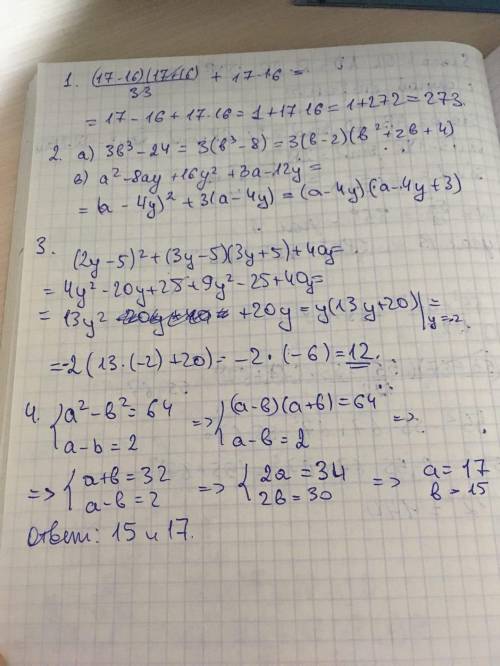 1. (17-16)(17+16)/33 + 17·16 =
= 17 - 16 + 17·16 = 1+17·16 = 1+272 = 273.
2. а) 3в³ - 24 = 3(в³ - 8) = 3(в-2)(в²+2в+4)
в) a² - 8ay + 16y² + 3a - 12y =
= (a - 4y)² + 3(a - 4y) = (a - 4y)(a - 4y + 3)
3.
(2y - 5)² + (3y - 5)(3y + 5) + 40y =
= 4y² - 20y + 25 + 9y² - 25 + 40y =
= 13y² + 20y = y(13y + 20)|y=-2 =
= -2(13·(-2) + 20) = -2·(-6) = 12.
4. { a² - в² = 64 => { (a - в)(a + в) = 64 =>
a - b = 2 a - в = 2
=> { a + в = 32 => { 2a = 34 => a = 17
a - в = 2 2в = 30 в = 15
Ответ: 15 и 17.